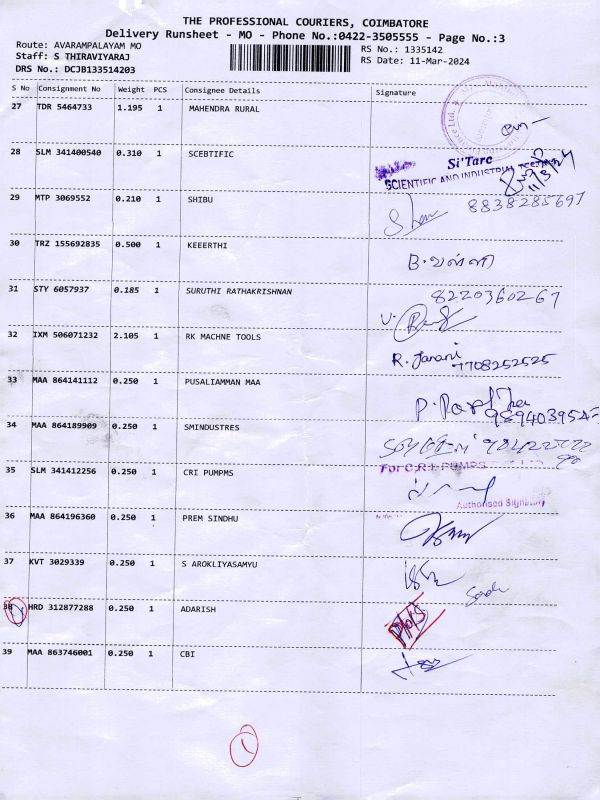 THE PROFESSIONAL COURIERS, COIMBATORE
Delivery Runsheet - MO - Phone No.:0422-3505555 - Page No.:3
Route: AVARAMPALAYAM MO RS No.: 1335142
Staff: S THIRAVIYARAJ RS Date: 11-Mar-2024
DRS No.: DCJB133514203
S No Consignment No Weight PCS Consignee Details Signature
27 TDR 5464733 1.195 1 MAHENDRA RURAL
28 SLM 341400540 0.310 1 SCEBTIFIC
Si'Tarc
SCIENTIFIC AND INDUSTRIAL
11/3/24
29 MTP 3069552 0.210 1 SHIBU 8838285697
30 TRZ 155692835 0.500 1 KEEERTHI
B.
31 STY 6057937 0.185 1 SURUTHI RATHAKRISHNAN 8220360267
32 IXM 506071232 2.105 1 RK MACHNE TOOLS
R. Janani 7708252525
33 MAA 864141112 0.250 1 PUSALIAMMAN MAA
34 MAA 864189909 0.250 1 SMINDUSTRES
35 SLM 341412256 0.250 1 CRI PUMPMS
For C.R.I. PUMPS
Authorised Signatory
36 MAA 864196360 0.250 1 PREM SINDHU
37 KVT 3029339 0.250 1 S AROKLIYASAMYU
38 HRD 312877288 0.250 1 ADARISH
39 MAA 863746001 0.250 1 CBI
1